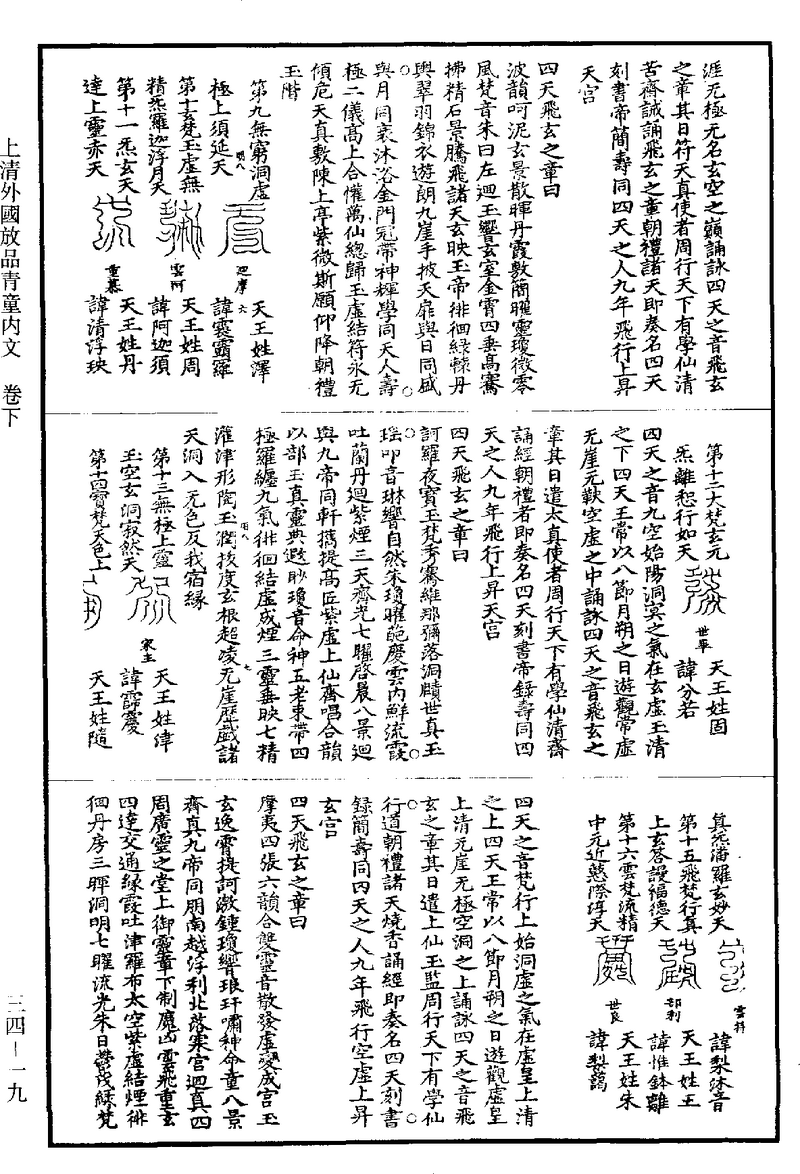 上清外國放品青童內文　卷下
涯无極元名玄空之巔誦詠四天之音飛玄
之章其日符天真使者周行天下有學仙清
苦齋誠誦飛玄之童朝禮諸天即奏名四天
刻書帝簡壽同四天之人九年飛行上昇
天宮
四天飛玄之章曰
波韻呵泥玄景散暉丹霞敷簡曜靈瓊微零
風梵音朱曰左迴玉響玄室金霄四垂高騫
拂精石景騰飛諸天玄映玉帝徘徊綠軿丹
輿翠羽錦衣遊朗九崖手披天扉與日同盛
與月同衰沐浴金門冠帶神輝學同天人壽
極二儀高上合懽萬仙總歸玉虛結符永无
傾危天真敷陳上亭紫微斯願仰降朝禮
玉階
第九無窮洞虛
極上須延天
迦摩
天王姓澤
諱霐霸羅
第十玄梵玉虛無
精炁羅迦浮月天
雲阿
天王姓周
諱阿迦須
第十一炁玄天
達上靈赤天
重慕
天王姓丹
諱清浮殃
第十二大梵玄元
炁離恕行如天
世畢
天王姓固
諱分若
四天之音九空始陽洞冥之氣在玄虛玉清
之下四天王常以八節月朔之日遊觀常虛
无崖元歎空虛之中誦詠四天之音飛玄之
章其日遣太真使者周行天下有學仙清齋
誦經朝禮者即奏名四天刻書帝錄壽同四
天之人九年飛行上昇天宮
四天飛玄之章曰
訶羅夜寶玉梵秀騫維那彌落洞賾世真玉
瑶叩音琳響自然朱瓊曜葩慶雲內鮮流霞
吐蘭丹迴紫煙三天齊光七曜啓晨八景迴
輿九帝同軒攜提高匠紫虛上仙齊唱合韻
以部玉真靈典遐眇瓊音命神五老束帶四
極羅纏九氣徘徊結虛成煙三靈垂映七精
灌津形陶玉澗拔度玄根超凌无崖歷戲諸
天洞入无色反我宿緣
第十三無極上靈
玉空玄洞寂然天
宋主
天王姓律
諱霘慶
第十四寶梵天色上
天王姓隨
真炁潘羅玄妙天
雲持
諱梨沐音
第十五飛梵行真
上玄荅謾福德天
郚利
天王姓王
諱惟鉢離
第十六雲梵流精
中元近慧際淳天
世良
天王姓朱
諱梨蔼
四天之音梵行上始洞虛之氣在虛皇上清
之上四天王常以八節月朔之日遊觀虛皇
上清无崖无極空洞之上誦詠四天之音飛
玄之章其日遣上仙玉監周行天下有學仙
行道朝禮諸天燒香誦經即奏名四天刻書
錄簡壽同四天之人九年飛行空虛上昇
玄宮
四天飛玄之章曰
摩夷四張六韻合雙靈音散發虛變成宮玉
玄逸霄提訶激鍾瓊響琅玕嘯神命童八景
齊真九帝同朋南越浮利北落寒宮迴真四
周廣靈之堂上御靈章下制魔凶雲飛重玄
四達交通緣霞吐津羅布太空紫虛結煙徘
徊丹房三暉洞明七曜流光朱日鬱茂綠梵
三四—一九